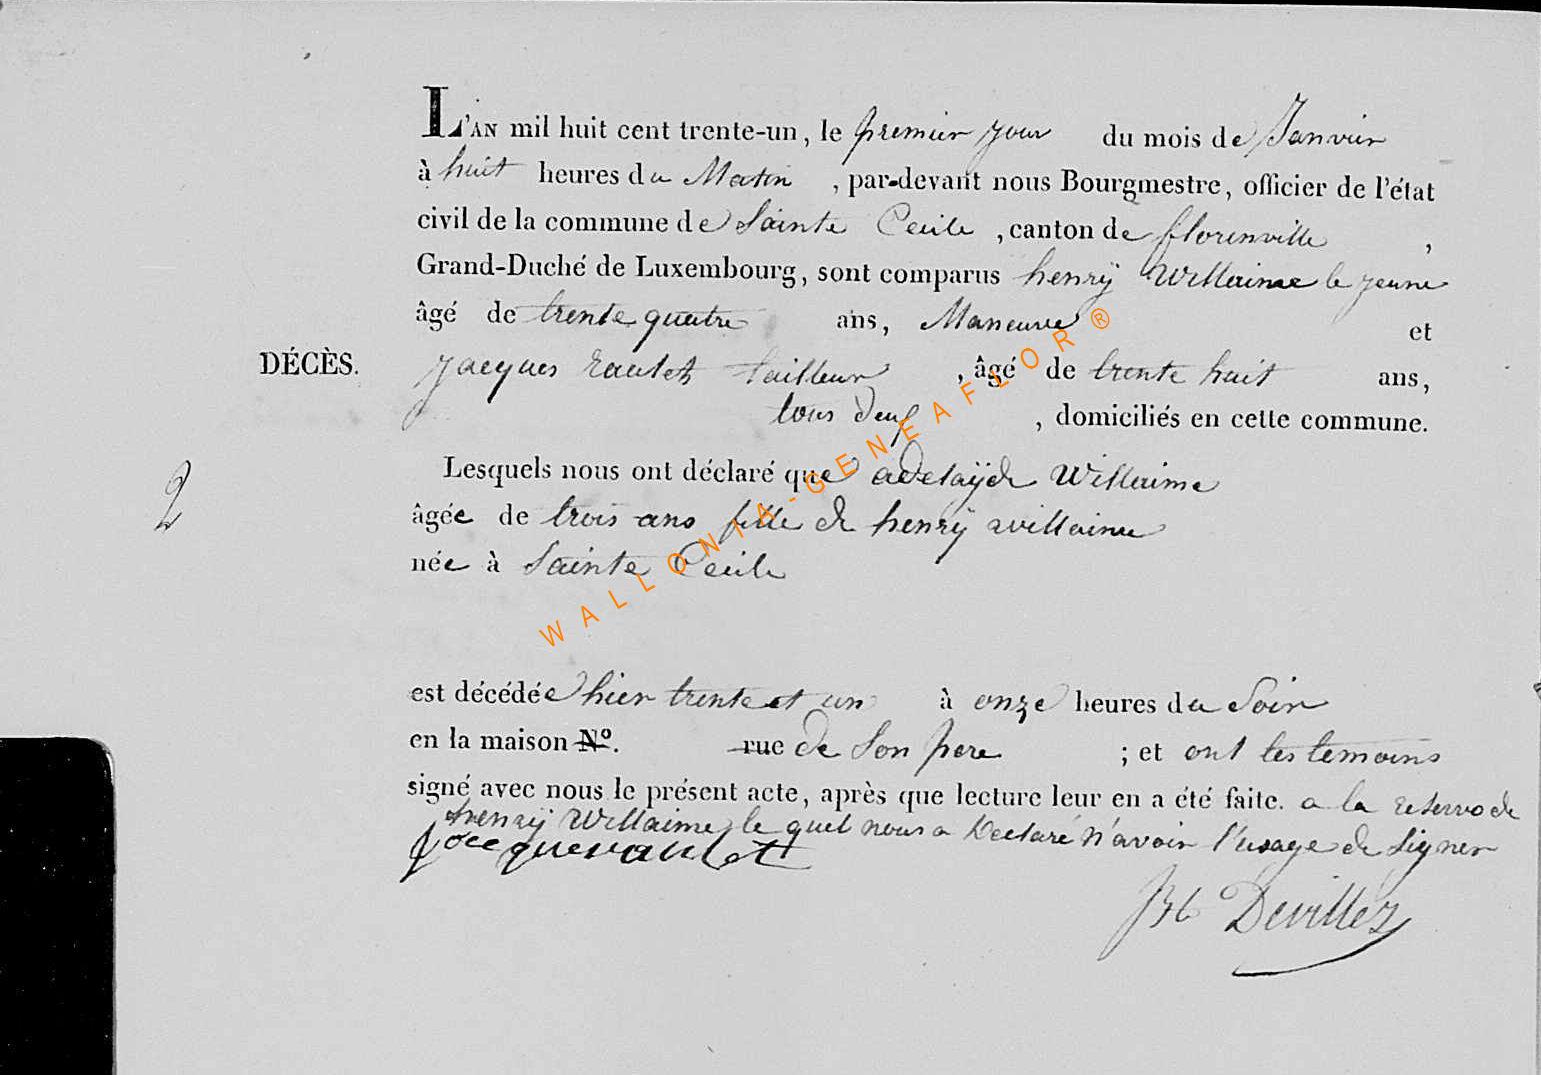 L'AN mil huit cent trente-un, le premier jour du mois de Janvier
à huit heures du Matin , par-devant nous Bourgmestre, officier de l'état
civil de la commune de Sainte Cecile , canton de florenville ,
Grand-Duché de Luxembourg, sont comparus henrÿ Willaime le jeune
âgé de trente quatre ans, Maneuve et
DÉCÈS. jacques raulet tailleur , âgé de trente huit ans,
tous deux , domiciliés en cette commune.
Lesquels nous ont déclaré que adelaÿde Willaime
2 âgée de trois ans fille de henrÿ willaime
née à Sainte Cecile
est décédée hier trente et un à onze heures du Soir
en la maison N°. rue de Son pere ; et ont les temoins
signé avec nous le présent acte, après que lecture leur en a été faite. a la reserve de
henrÿ Willaime le quel nous a Declaré n'avoir l'usage de Signer
Jocqueraulet
Devillez
WALLONIA-GENEAFLOR®